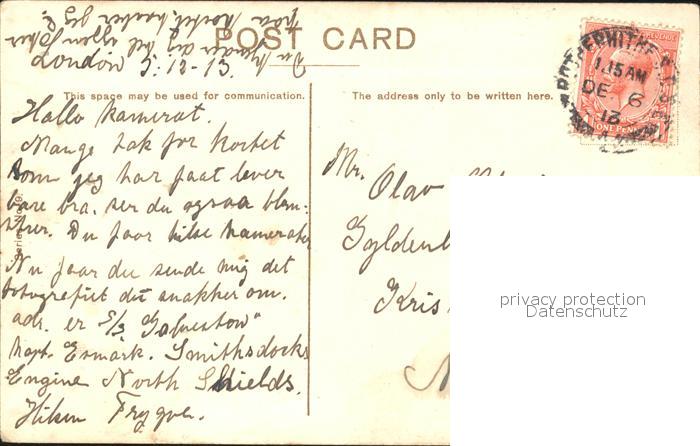 POST CARD
London 5.-12-13.
This space may be used for communication.
The address only to be written here.
Hallo kamerat.
Mange tak for kortet
som jeg har faat lever
bare bra. ser du ogsaa blom-
strer. Du faar hilse kamerater
Nu faar du sende mig det
fotografiet du snakker om.
adr. er S/S "Galveston"
Kapt. Esmark. Smithsdocks
Engine North Shields.
Hilsen Trygve.
Mr. Olav
Gyldenl
Kris
N
ROTHERHITHE
1.15AM
DE 6
13
REVENUE
ONE PENNY
privacy protection
Datenschutz